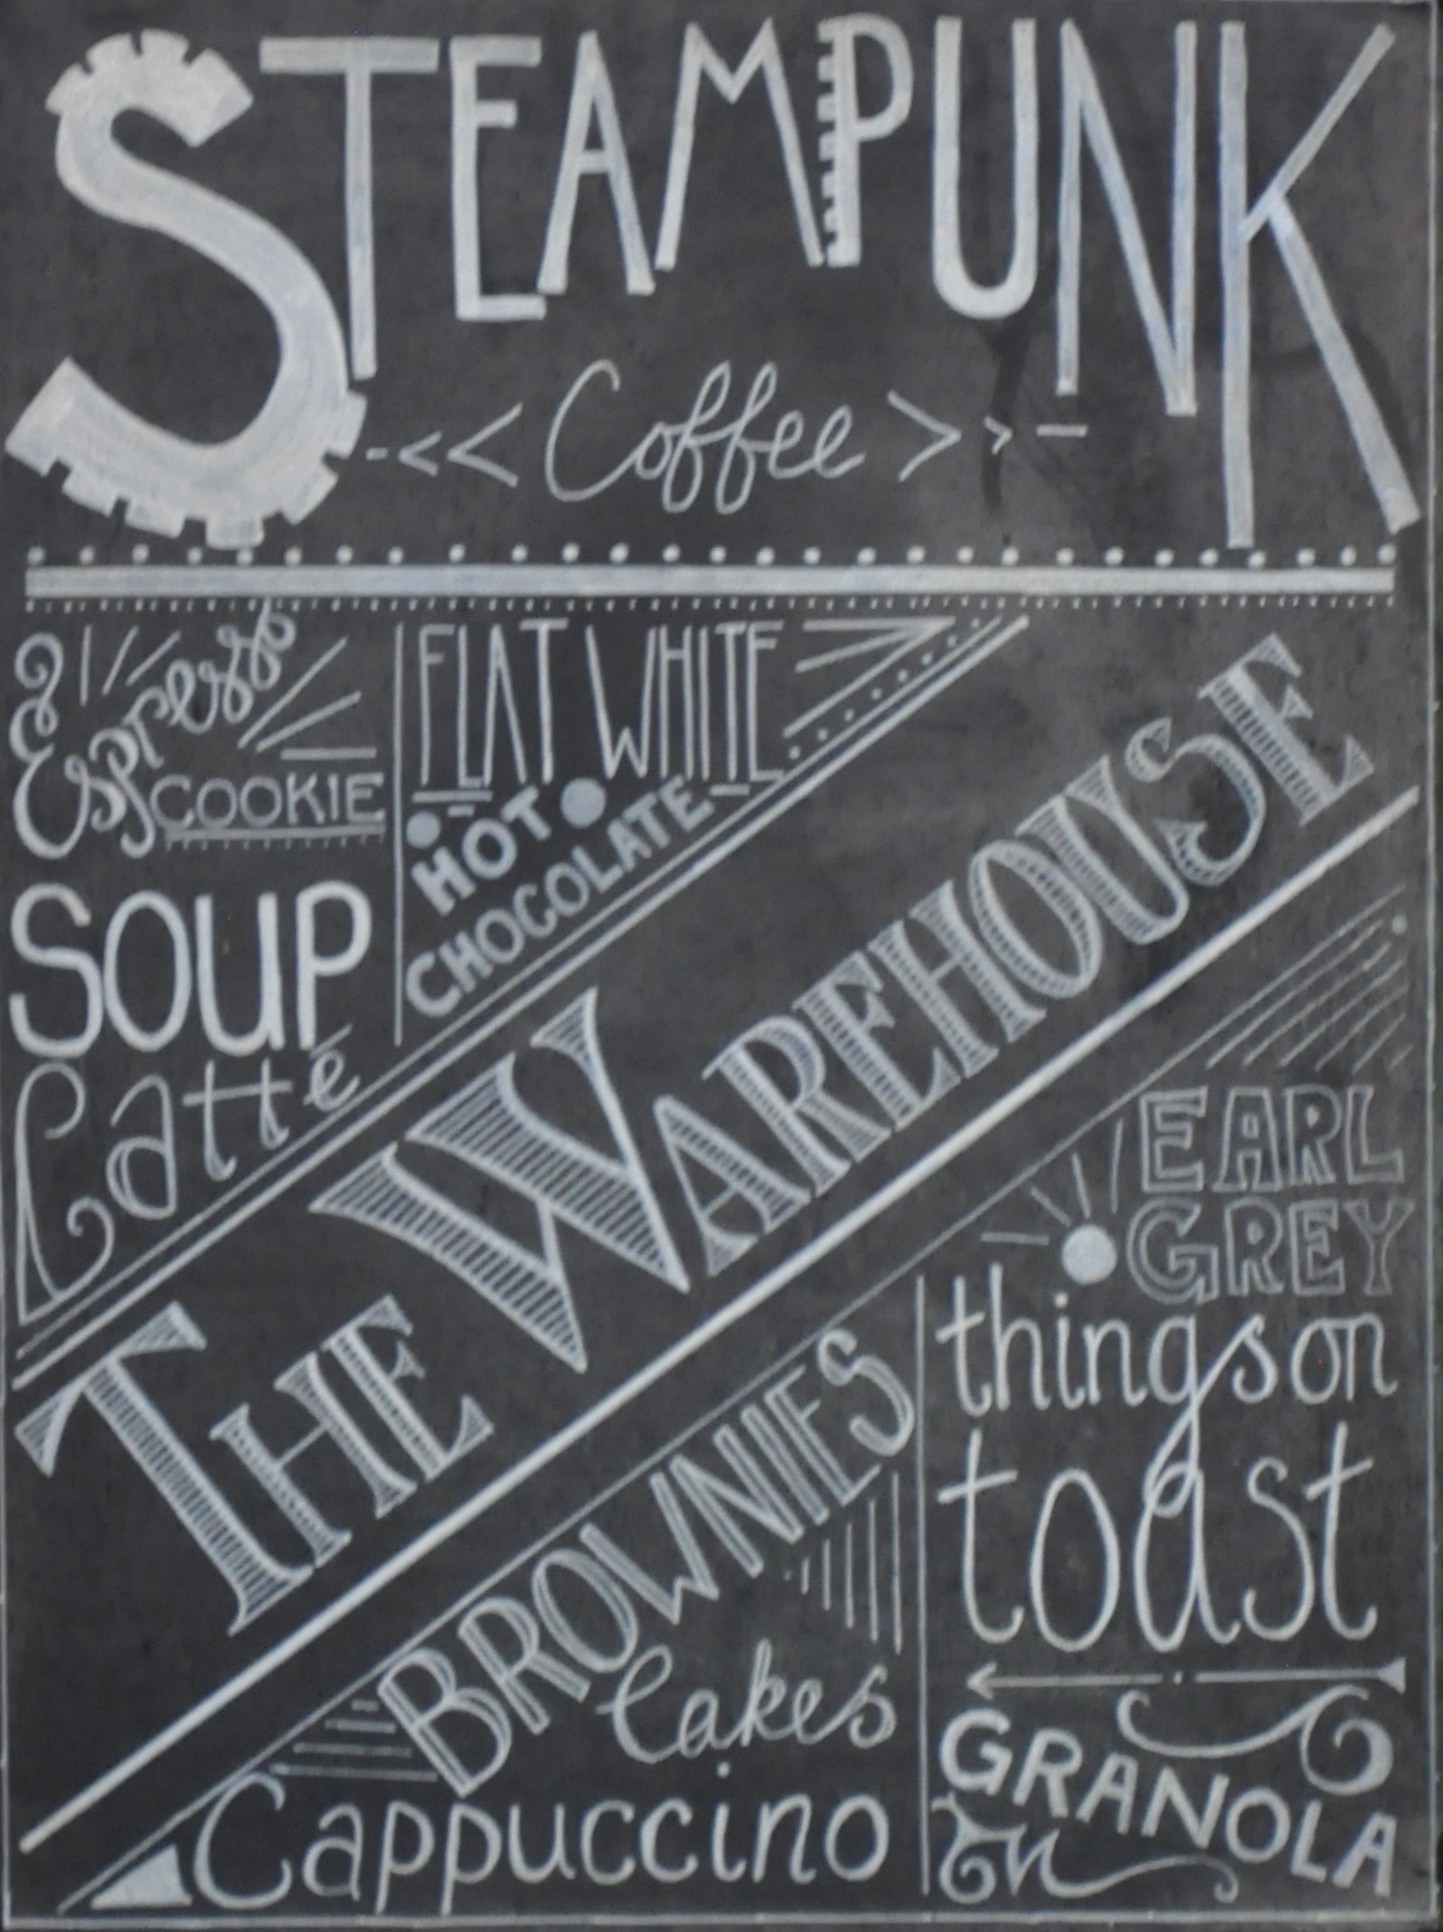 STEAMPUNK
Coffee
Espresso
COOKIE
FLAT WHITE
HOT
CHOCOLATE
SOUP
Latte
THE WAREHOUSE
EARL
GREY
things on
toast
BROWNIES
Cakes
Cappuccino
GRANOLA